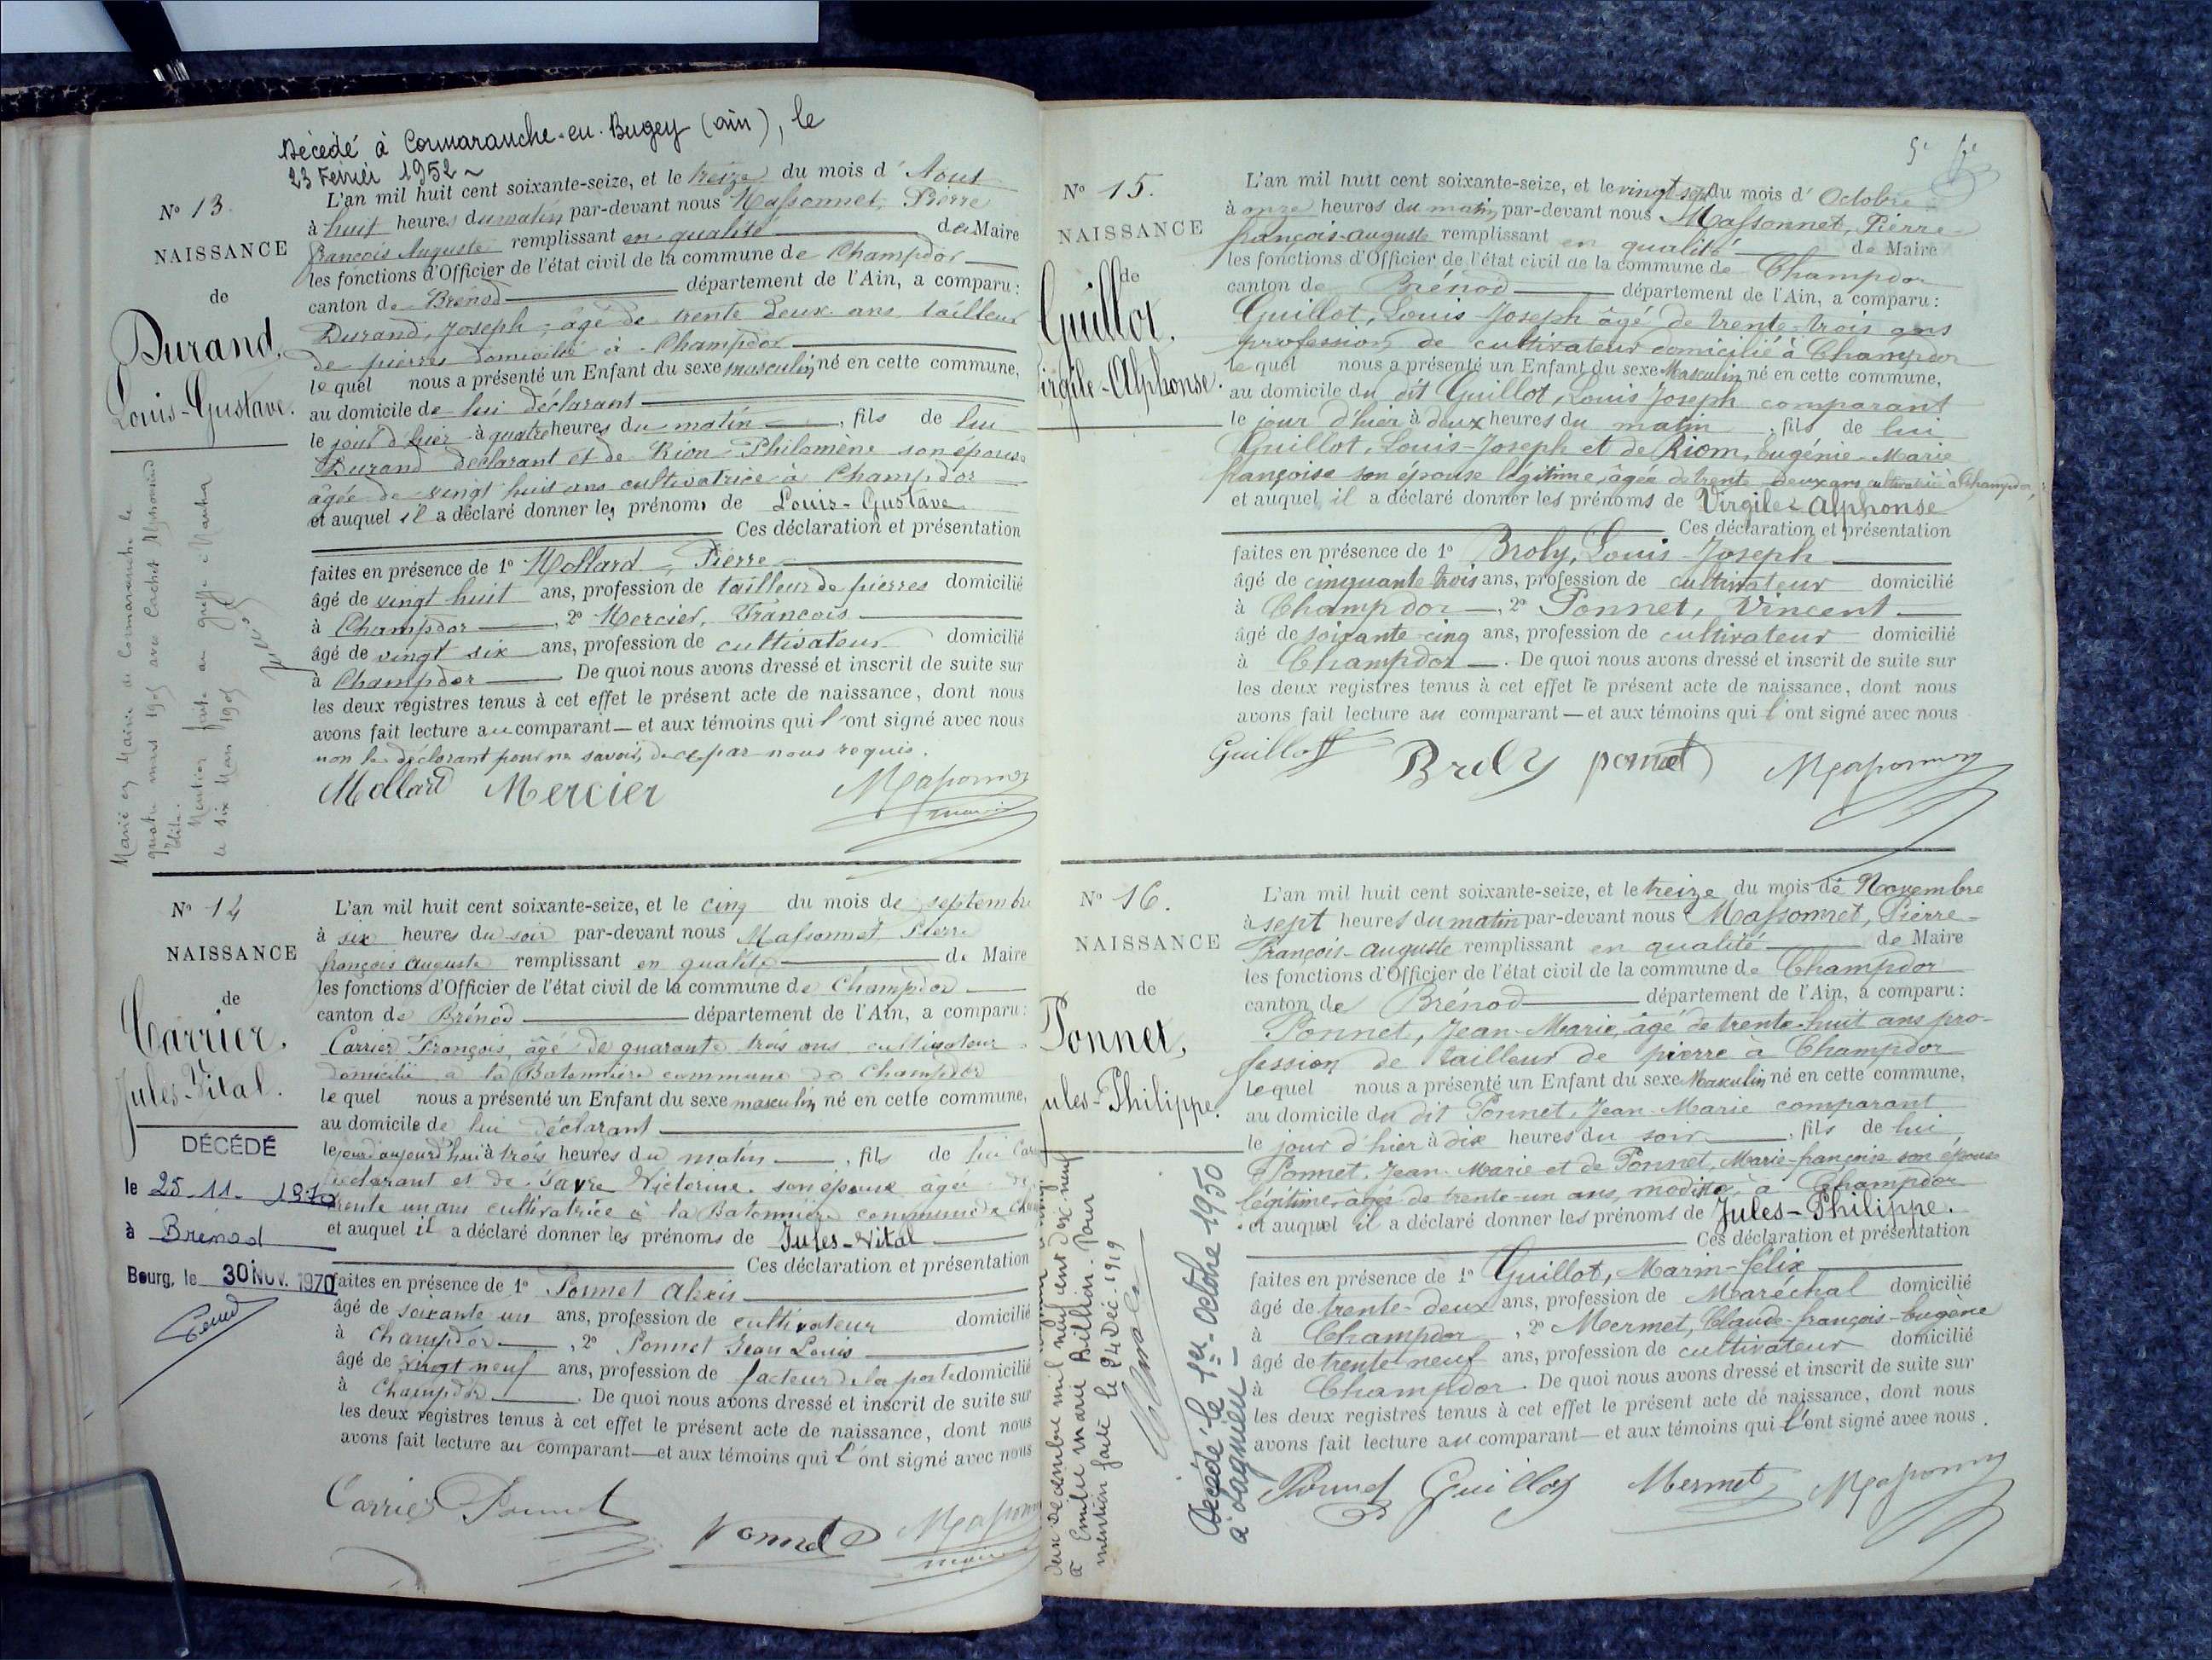 Décédé à Cormaranche-en-Bugey (ain), le
23 Février 1952
N° 13.
NAISSANCE
de
Durand,
Louis-Gustave.
L'an mil huit cent soixante-seize, et le treize du mois d'Aout
à huit heures du matin par-devant nous Massonnet, Pierre
François Auguste remplissant en qualité de Maire
les fonctions d'Officier de l'état civil de la commune de Champdor
canton de Brénod département de l'Ain, a comparu:
Durand, Joseph, âgé de trente deux ans tailleur
de pierres domicilié à Champdor
lequel nous a présenté un Enfant du sexe masculin, né en cette commune,
au domicile de lui déclarant
le jour d'hier à quatre heures du matin, fils de lui
Durand déclarant et de Rion Philomène son épouse
âgée de vingt huit ans cultivatrice à Champdor
et auquel il a déclaré donner les prénoms de Louis-Gustave
Ces déclaration et présentation
faites en présence de 1° Mollard, Pierre
âgé de vingt huit ans, profession de tailleur de pierres domicilié
à Champdor, 2° Mercier, François
âgé de vingt six ans, profession de cultivateur domicilié
à Champdor De quoi nous avons dressé et inscrit de suite sur
les deux registres tenus à cet effet le présent acte de naissance, dont nous
avons fait lecture au comparant — et aux témoins qui l'ont signé avec nous
non le déclarant pour ne savoir, de ce par nous requis.
Mollard Mercier Massonnet
maire
Marié en Mairie de Cormaranche le
quatre mars 1905 avec
le six Mars 1905
N° 14
NAISSANCE
de
Carrier,
Jules-Vital.
DÉCÉDÉ
le 25-11-1970
à Brénod
Bourg, le 30 NOV. 1970
L'an mil huit cent soixante-seize, et le cinq du mois de septembre
à six heures du soir par-devant nous Massonnet Pierre
françois Auguste remplissant en qualité de Maire
les fonctions d'Officier de l'état civil de la commune de Champdor
canton de Brénod département de l'Ain, a comparu:
Carrier François, âgé de quarante trois ans cultivateur
domicilié à la Batonnière commune de Champdor
lequel nous a présenté un Enfant du sexe masculin, né en cette commune,
au domicile de lui déclarant
le jour d'aujourd'hui à trois heures du matin, fils de lui
déclarant et de Favre Victorine son épouse âgée de
trente un ans cultivatrice à la Batonnière commune de
et auquel il a déclaré donner les prénoms de Jules-Vital
Ces déclaration et présentation
faites en présence de 1° Ponnet Alexis
âgé de soixante un ans, profession de cultivateur domicilié
à Champdor, 2° Ponnet Jean Louis
âgé de vingt neuf ans, profession de facteur de la poste domicilié
à Champdor. De quoi nous avons dressé et inscrit de suite sur
les deux registres tenus à cet effet le présent acte de naissance, dont nous
avons fait lecture au comparant — et aux témoins qui l'ont signé avec nous
Carrier Ponnet Ponnet Massonnet
maire
N° 15.
NAISSANCE
de
Guillot,
Virgile-Alphonse.
L'an mil huit cent soixante-seize, et le vingt sept du mois d'Octobre
à onze heures du matin, par-devant nous Massonnet, Pierre
françois-auguste remplissant en qualité de Maire
les fonctions d'Officier de l'état civil de la commune de Champdor
canton de Brénod département de l'Ain, a comparu:
Guillot, Louis-Joseph âgé de trente-trois ans
profession de cultivateur domicilié à Champdor
lequel nous a présenté un Enfant du sexe Masculin né en cette commune,
au domicile du dit Guillot, Louis Joseph comparant
le jour d'hier à deux heures du matin, fils de lui
Guillot, Louis-Joseph et de Riom, Eugénie-Marie
françoise son épouse légitime, âgée de trente-deux ans cultivatrice à Champdor,
et auquel il a déclaré donner les prénoms de Virgile-Alphonse
Ces déclaration et présentation
faites en présence de 1° Broly, Louis-Joseph
âgé de cinquante trois ans, profession de cultivateur domicilié
à Champdor, 2° Ponnet, Vincent
âgé de soixante-cinq ans, profession de cultivateur domicilié
à Champdor. De quoi nous avons dressé et inscrit de suite sur
les deux registres tenus à cet effet le présent acte de naissance, dont nous
avons fait lecture au comparant — et aux témoins qui l'ont signé avec nous
Guillot Broly ponnet Massonnet
N° 16.
NAISSANCE
de
Ponnet,
Jules-Philippe.
L'an mil huit cent soixante-seize, et le treize du mois de Novembre
à sept heures du matin par-devant nous Massonnet, Pierre-
François-auguste remplissant en qualité de Maire
les fonctions d'Officier de l'état civil de la commune de Champdor
canton de Brénod département de l'Ain, a comparu:
Ponnet, Jean-Marie, âgé de trente-huit ans pro-
fession de tailleur de pierre à Champdor
lequel nous a présenté un Enfant du sexe Masculin né en cette commune,
au domicile du dit Ponnet, Jean-Marie comparant
le jour d'hier à dix heures du soir, fils de lui
Ponnet, Jean-Marie et de Ponnet, Marie-françoise son épouse
légitime, âgée de trente-un ans, modiste, à Champdor
et auquel il a déclaré donner les prénoms de Jules-Philippe.
Ces déclaration et présentation
faites en présence de 1° Guillot, Marin-félix
âgé de trente-deux ans, profession de Maréchal domicilié
à Champdor, 2° Mermet, Claude-françois-Eugène
âgé de trente neuf ans, profession de cultivateur domicilié
à Champdor. De quoi nous avons dressé et inscrit de suite sur
les deux registres tenus à cet effet le présent acte de naissance, dont nous
avons fait lecture au comparant — et aux témoins qui l'ont signé avec nous.
Ponnet Guillot Mermet Massonnet
décembre mil neuf cent dix neuf
à Emilie marie Billion. Pour
mention faite le 24 Déc. 1919
Décédé le 1er octobre 1950
à Lagnieu